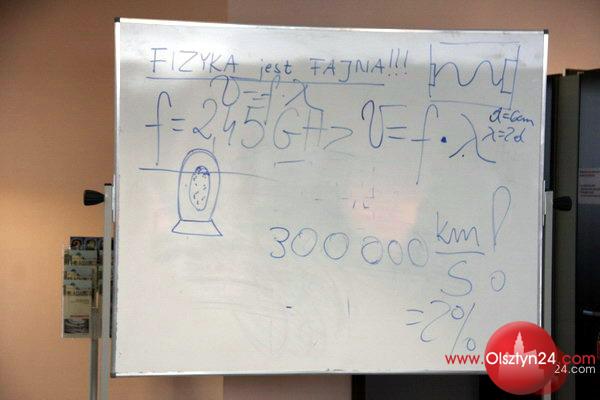 FIZYKA jest FAJNA!!!
v=f·λ
f=2,45GHz v=f·λ
d=6cm
λ=2d
300 000 km/s
=2%
www.Olsztyn24.com
24.com